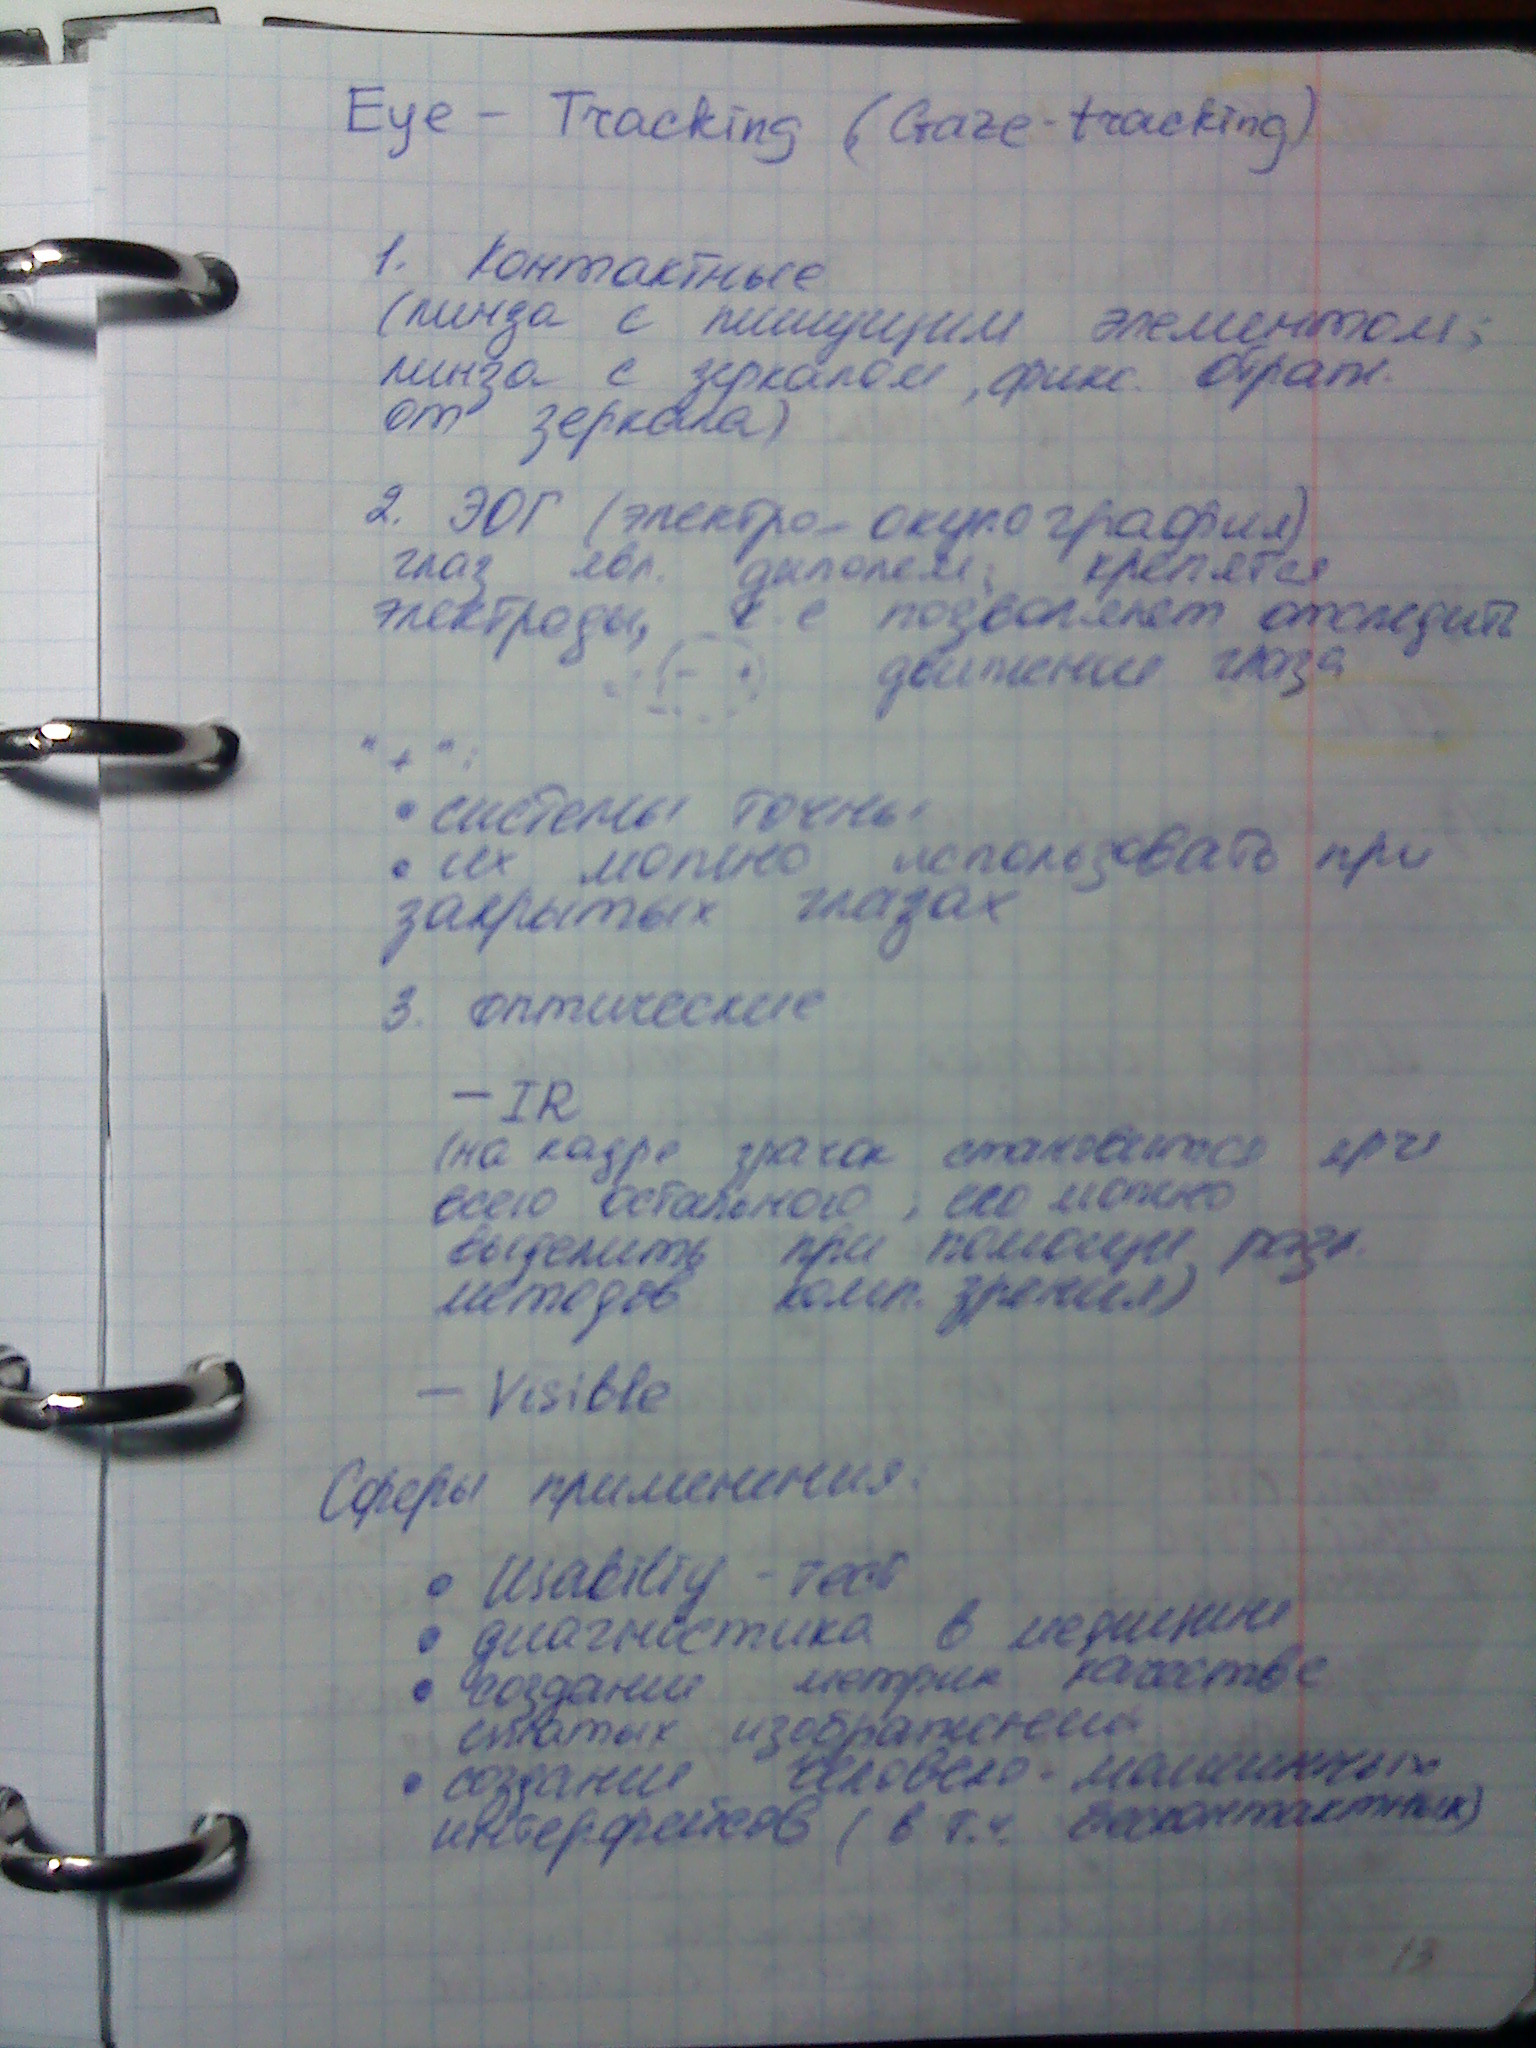 Eye - Tracking (Gaze-tracking)
1. Контактные
(линза с пишущим элементом;
линза с зеркалом, фикс. отраж.
от зеркала)
2. ЭОГ (электро-окулография)
глаз явл. диполем; крепятся
электроды, позволяет отследить
- +
движение глаза
"+":
• системы точны
• их можно использовать при
закрытых глазах
3. оптические
- IR
(на кадре зрачок становится ярче
всего остального, его можно
выделить при помощи разл.
методов комп. зрения)
- Visible
Сферы применения:
• Usability - тест
• диагностика в медицине
• создание метрик качества
сжатых изображений
• создание человеко-машинных
интерфейсов (в т.ч. бесконтактных)
13